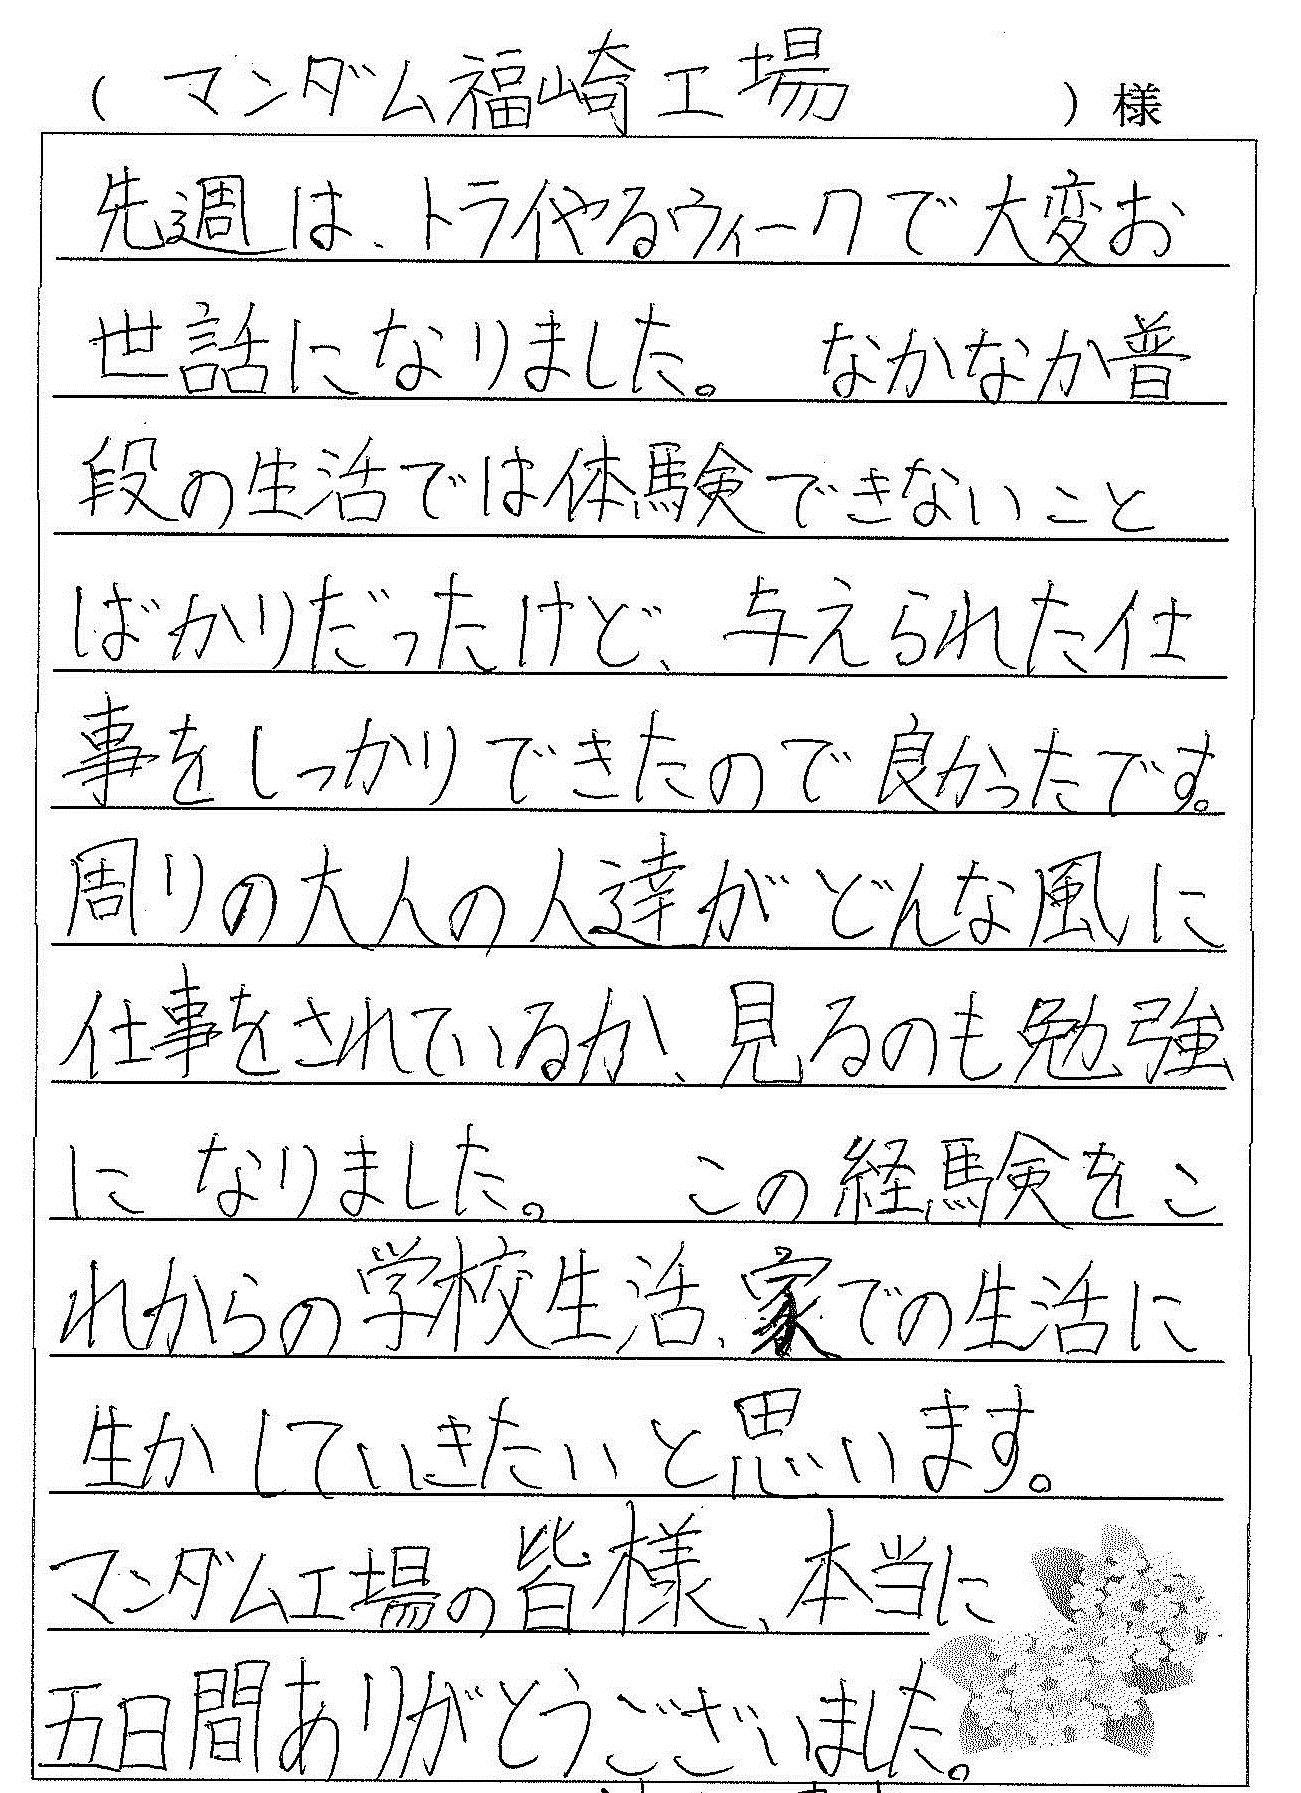 （ マンダム福崎工場 ）様
先週は、トライやるウィークで大変お
世話になりました。 なかなか普
段の生活では体験できないこと
ばかりだったけど、与えられた仕
事をしっかりできたので良かったです。
周りの大人の人達がどんな風に
仕事をされているか、見るのも勉強
になりました。 この経験をこ
れからの学校生活、家での生活に
生かしていきたいと思います。
マンダム工場の皆様、本当に
五日間ありがとうございました。